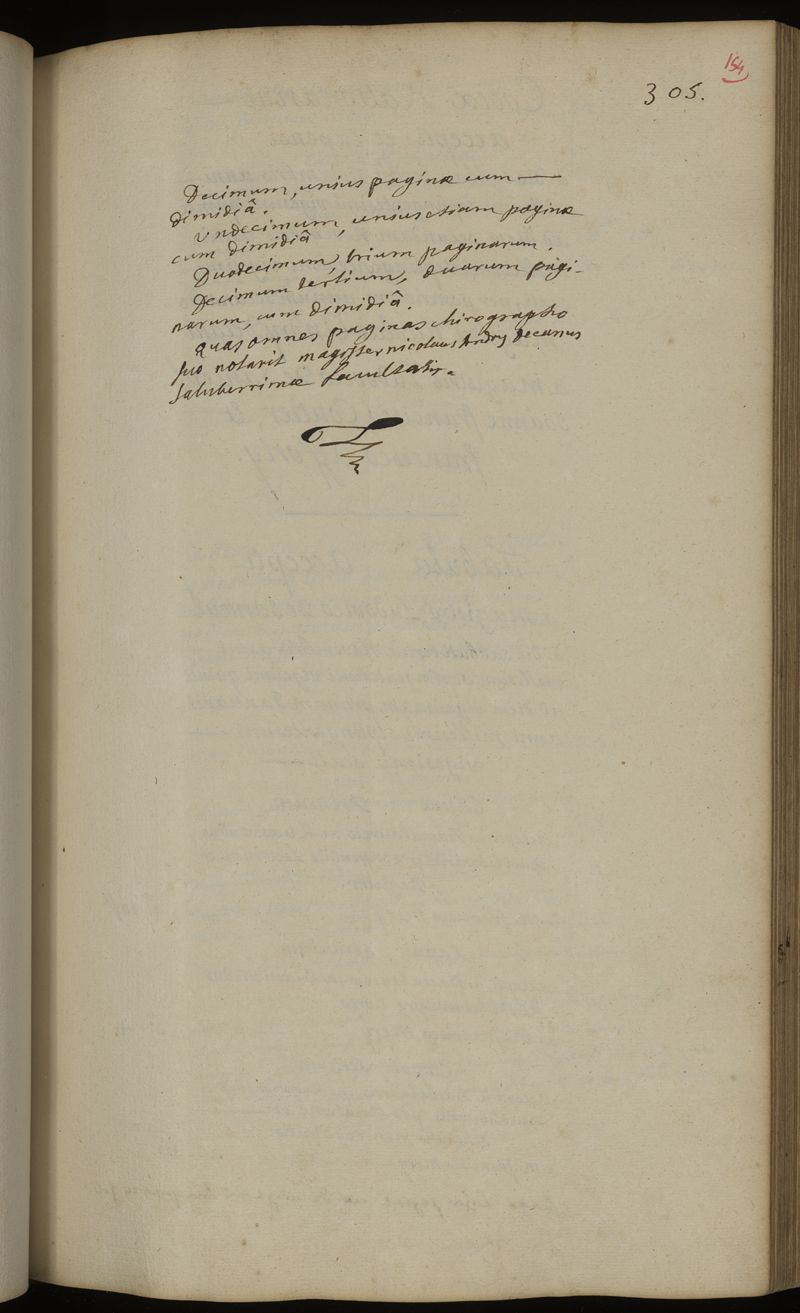 154
305.
Decimum, unius paginæ cum —
dimidiâ.
Undecimum, unius etiam paginæ
cum dimidiâ
Duodecimum, trium paginarum.
Decimum tertium, duarum pagi-
narum, cum dimidiâ.
quas omnes paginas chirographo
suo notavit magister nicolaus Andry decanus
saluberrimæ facultatis.